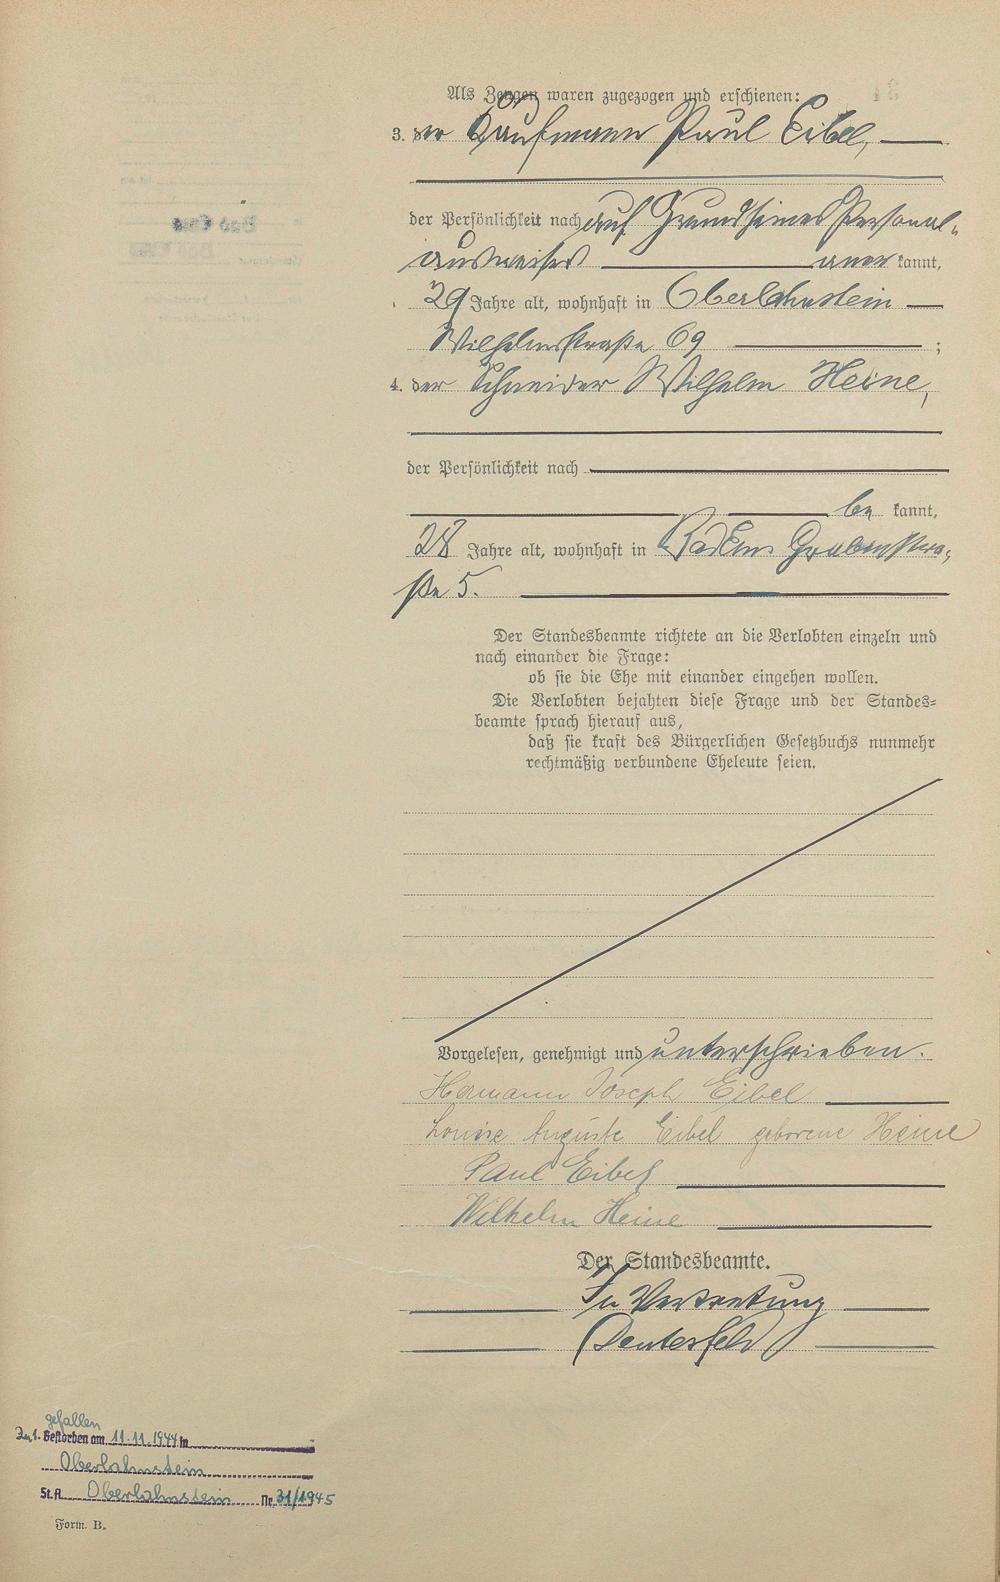 Als Zeugen waren zugezogen und erschienen:
3. der Kaufmann Paul Eibel,
der Persönlichkeit nach auf Grund seines Personal-
ausweises aner kannt,
29 Jahre alt, wohnhaft in Oberlahnstein
Wilhelmstraße 69 ;
4. der Schneider Wilhelm Heine,
der Persönlichkeit nach
be kannt,
28 Jahre alt, wohnhaft in Bad Ems Grabenstra-
ße 5.
Der Standesbeamte richtete an die Verlobten einzeln und
nach einander die Frage:
ob sie die Ehe mit einander eingehen wollen.
Die Verlobten bejahten diese Frage und der Standes-
beamte sprach hierauf aus,
daß sie kraft des Bürgerlichen Gesetzbuchs nunmehr
rechtmäßig verbundene Eheleute seien.
Vorgelesen, genehmigt und unterschrieben.
Hermann Joseph Eibel
Louise Auguste Eibel geborene Heine
Paul Eibel
Wilhelm Heine
Der Standesbeamte.
In Vertretung
gefallen
Zu 1. Gestorben am 11.11.1944 in
Oberlahnstein
St.A. Oberlahnstein Nr. 31/1945
Form. B.